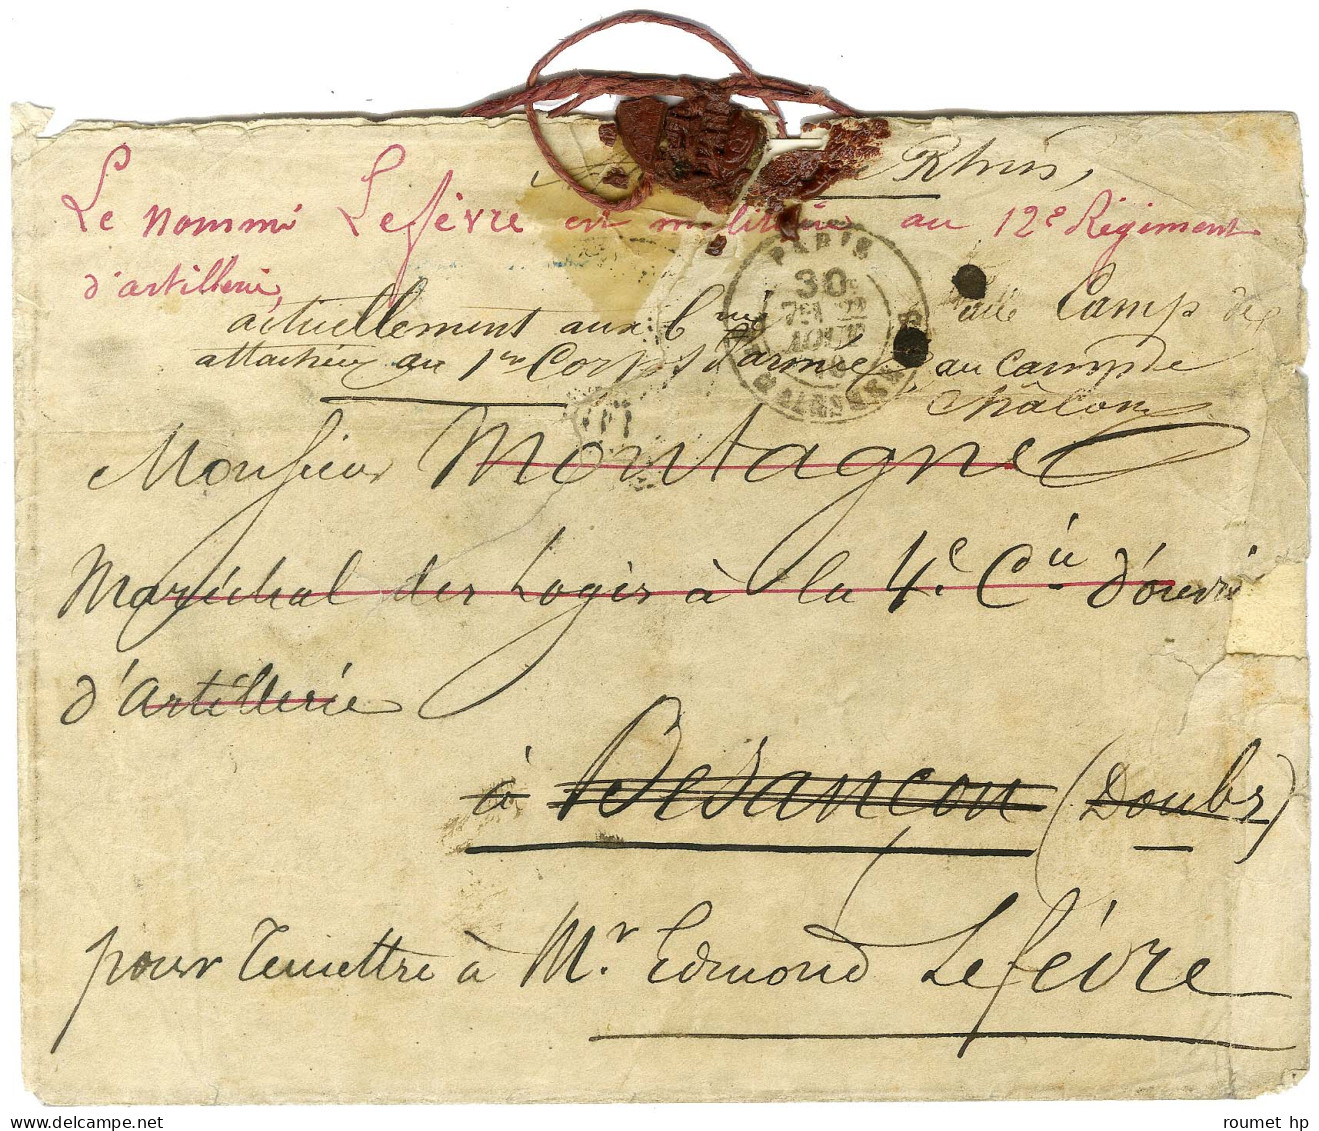 Rhin,
Le nommé Lefèvre est militaire au 12e Régiment
d'artillerie,
PARIS
30
7E
AOUT
70
MALESHERBES
Camp de
actuellement aux
attachée au 1er Corps d'armée, au camp de
Châlons
Monsieur Montagne
Maréchal des Logis à la 4e Cie d'ouvri
d'Artillerie
à Besançon (Doubs)
pour remettre à Mr. Edmond Lefèvre
roumet hp